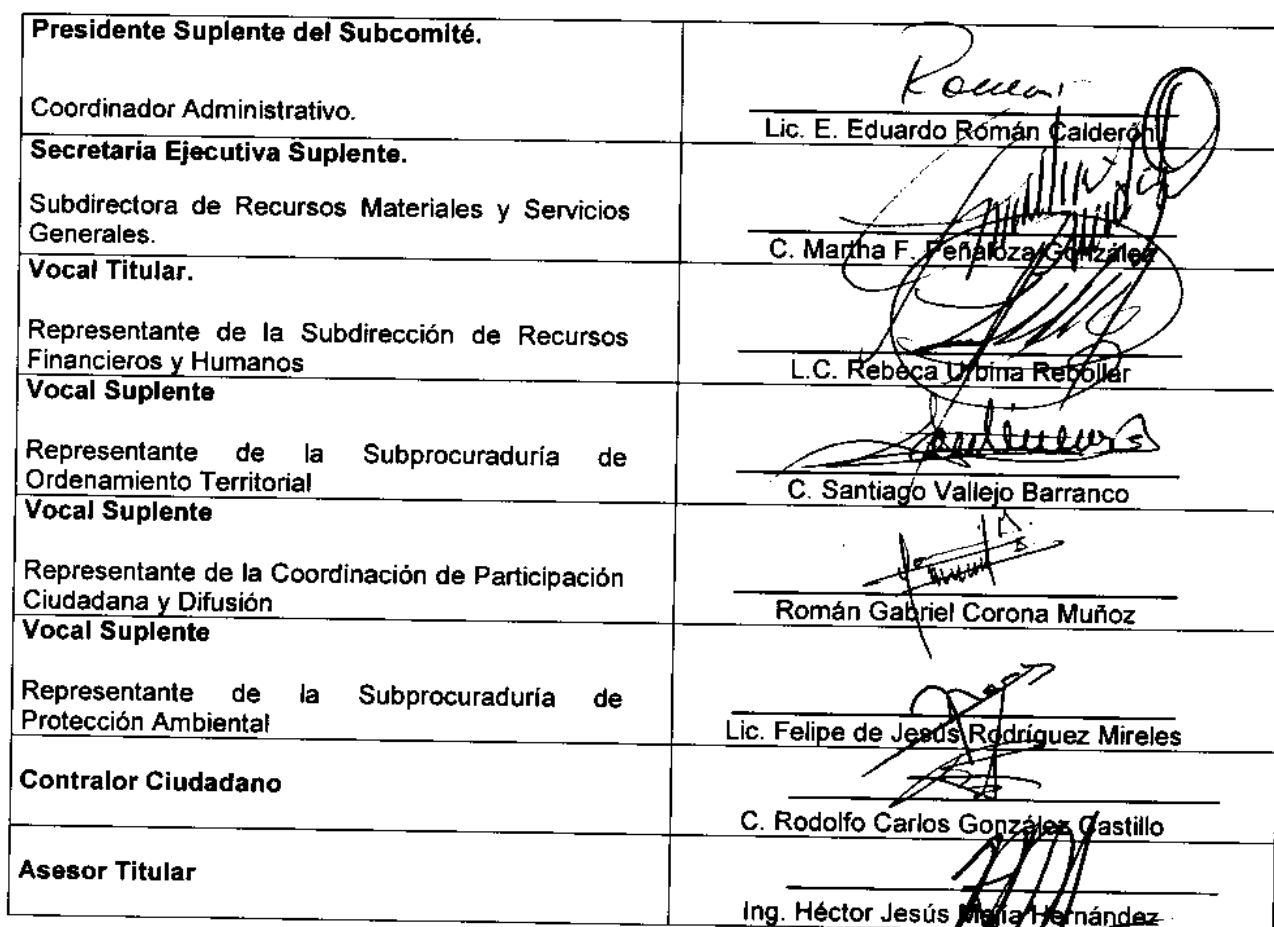 Presidente Suplente del Subcomité.
Coordinador Administrativo.
Lic. E. Eduardo Román Calderón
Secretaria Ejecutiva Suplente.
Subdirectora de Recursos Materiales y Servicios
Generales.
C. Martha F. Peñaloza González
Vocal Titular.
Representante de la Subdirección de Recursos
Financieros y Humanos
L.C. Rebeca Urbina Rebollar
Vocal Suplente
Representante de la Subprocuraduría de
Ordenamiento Territorial
C. Santiago Vallejo Barranco
Vocal Suplente
Representante de la Coordinación de Participación
Ciudadana y Difusión
Román Gabriel Corona Muñoz
Vocal Suplente
Representante de la Subprocuraduría de
Protección Ambiental
Lic. Felipe de Jesús Rodríguez Mireles
Contralor Ciudadano
C. Rodolfo Carlos González Castillo
Asesor Titular
Ing. Héctor Jesús Hernández